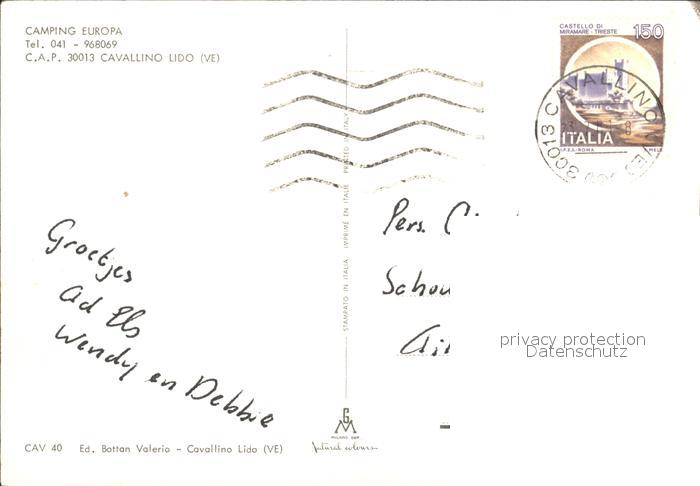 CAMPING EUROPA
Tel. 041 - 968069
C.A.P. 30013 CAVALLINO LIDO (VE)
CASTELLO DI
MIRAMARE - TRIESTE
150
ITALIA
I.P.Z.S.-ROMA
30013 CAVALLINO
STAMPATO IN ITALIA IMPRIMÉ EN ITALIE PRINTED IN ITALY
Groetjes
Ad Els
Wendy en Debbie
Pers.
privacy protection
Datenschutz
MILANO
Natural colours
CAV 40 Ed. Bottan Valerio - Cavallino Lido (VE)